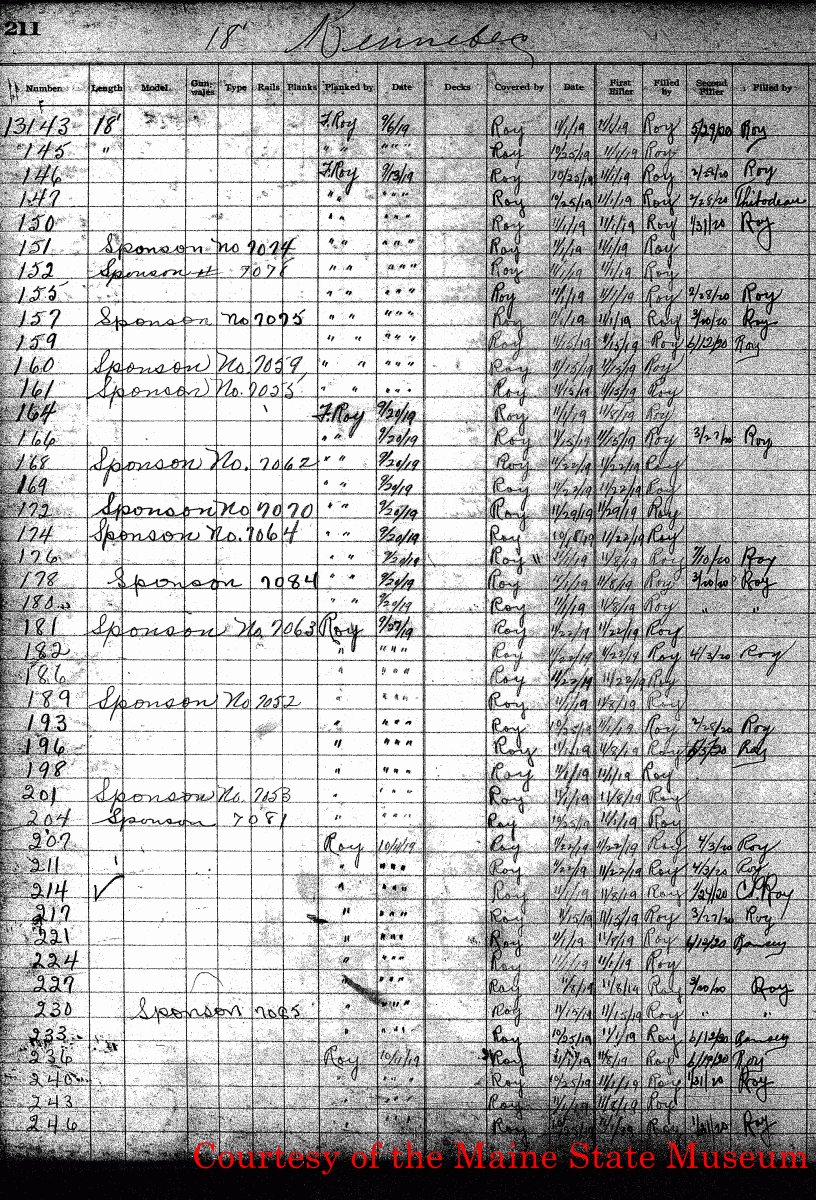 211
18' Kennebec
Number Length Model Gun-wales Type Rails Planks Planked by Date Decks Covered by Date First Filler Filled by Second Filler Filled by
13143 18' F. Roy 9/6/19 Roy 11/1/19 11/1/19 Roy 5/29/20 Roy
145 " " " " " " Roy 10/25/19 11/1/19 Roy
146 F. Roy 9/13/19 Roy 10/25/19 11/1/19 Roy Roy
147 " " " " " Roy 10/25/19 11/1/19 Roy 2/28/20 Thibodeau
150 " " " " " Roy 11/1/19 11/1/19 Roy 1/31/20 Roy
151 Sponson No 7074 " " " " " Roy 11/1/19 11/1/19 Roy
152 Sponson # 7078 " " " " " Roy 11/1/19 11/1/19 Roy
155 " " " " " Roy 11/1/19 11/1/19 Roy 2/28/20 Roy
157 Sponson No 7075 " " " " " Roy 11/1/19 11/1/19 Roy 3/20/20 Roy
159 " " " " " Roy 11/15/19 11/15/19 Roy 6/12/20 Roy
160 Sponson No. 7059 " " " " " Roy 11/15/19 11/15/19 Roy
161 Sponson No. 7055 " " " " " Roy 11/15/19 11/15/19 Roy
164 F. Roy 9/20/19 Roy 11/1/19 11/8/19 Roy
166 " " 9/20/19 Roy 11/15/19 11/15/19 Roy 3/27/20 Roy
168 Sponson No. 7062 " " 9/20/19 Roy 11/22/19 11/22/19 Roy
169 " " 9/20/19 Roy 11/22/19 11/22/19 Roy
172 Sponson No 7070 " " 9/20/19 Roy 11/29/19 11/29/19 Roy
174 Sponson No. 7064 " " 9/20/19 Roy 11/22/19 Roy
176 " " 9/20/19 Roy " 11/1/19 11/8/19 Roy Roy
178 Sponson 7084 " " 9/20/19 Roy 11/1/19 11/8/19 Roy 3/20/20 Roy
180 " " 9/20/19 Roy 11/1/19 11/8/19 Roy " "
181 Sponson No. 7063 Roy 9/27/19 Roy 11/22/19 11/22/19 Roy
182 " " " " Roy 11/22/19 Roy 4/3/20 Roy
186 " " " " Roy 11/22/19 11/22/19 Roy
189 Sponson No 7052 " " " " Roy 11/1/19 11/8/19 Roy
193 " " " " Roy 10/25/19 11/1/19 Roy 2/28/20 Roy
196 " " " " Roy 11/1/19 11/8/19 Roy Roy
198 " " " " Roy 11/1/19 11/1/19 Roy
201 Sponson No. 7053 " " " " Roy 11/1/19 11/8/19 Roy
204 Sponson 7081 " " " " Roy 10/25/19 11/1/19 Roy
207 Roy 10/4/19 Roy 11/22/19 11/22/19 Roy 4/3/20 Roy
211 " " " " Roy 11/22/19 11/22/19 Roy 4/3/20 Roy
214 ✓ " " " " Roy 11/1/19 11/8/19 Roy 1/24/20 C.P. Roy
217 " " " " Roy 11/15/19 11/15/19 Roy 3/27/20 Roy
221 " " " " Roy 11/1/19 11/8/19 Roy 6/12/20 Ramsey
224 " " " " Roy 11/1/19 11/1/19 Roy
227 " " " " Roy 11/8/19 11/8/19 Roy 3/20/20 Roy
230 Sponson 7085 " " " " Roy 11/15/19 11/15/19 Roy " "
233 " " " " Roy 10/25/19 11/1/19 Roy 6/12/20 Ramsey
236 Roy 10/11/19 Roy 11/1/19 11/8/19 Roy 6/19/20 Roy
240 " " " " Roy 10/25/19 11/1/19 Roy 1/31/20 Roy
243 " " " " Roy 11/1/19 11/8/19 Roy
246 " " " " Roy 10/25/19 11/1/19 Roy 1/31/20 Roy
Courtesy of the Maine State Museum